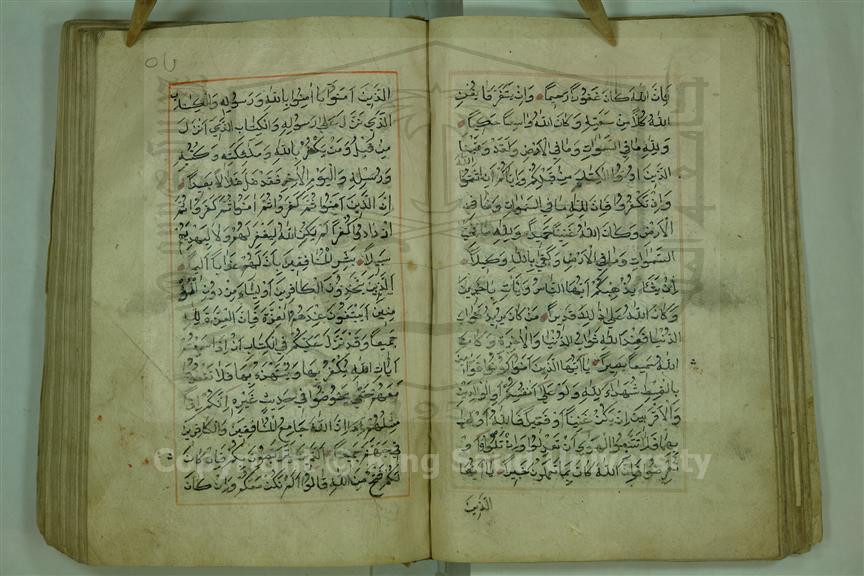 فان الله كان غفورا رحيما وان يتفرقا يغن
الله كلا من سعته وكان الله واسعا حكيما
ولله ما في السموات وما في الارض ولقد وصينا
الذين اوتوا الكتاب من قبلكم واياكم ان اتقوا الله
وان تكفروا فان لله ما في السموات وما في
الارض وكان الله غنيا حميدا ولله ما في
السموات وما في الارض وكفى بالله وكيلا
ان يشاء يذهبكم ايها الناس ويات باخرين
وكان الله على ذلك قديرا من كان يريد ثواب
الدنيا فعند الله ثواب الدنيا والاخرة وكان
الله سميعا بصيرا يا ايها الذين امنوا كونوا قوامين
بالقسط شهداء لله ولو على انفسكم او الوالدين
والاقربين ان يكن غنيا او فقيرا فالله اولى
بهما فلا تتبعوا الهوى ان تعدلوا وان تلووا او
تعرضوا فان الله كان بما تعملون خبيرا يا ايها
الذين
الذين امنوا امنوا بالله ورسوله والكتاب
الذي نزل على رسوله والكتاب الذي انزل
من قبل ومن يكفر بالله وملئكته وكتبه
ورسله واليوم الاخر فقد ضل ضلالا بعيدا
ان الذين امنوا ثم كفروا ثم امنوا ثم كفروا ثم
ازدادوا كفرا لم يكن الله ليغفر لهم ولا ليهديهم
سبيلا بشر المنافقين بان لهم عذابا اليما
الذين يتخذون الكافرين اولياء من دون المؤ
منين ايبتغون عندهم العزة فان العزة لله
جميعا وقد نزل عليكم في الكتاب ان اذا سمعتم
ايات الله يكفر بها ويستهزء بها فلا تقعدوا
معهم حتى يخوضوا في حديث غيره انكم اذا
مثلهم ان الله جامع المنافقين والكافرين
في جهنم جميعا الذين يتربصون بكم فان كان
لكم فتح من الله قالوا الم نكن معكم وان كان
Copyright
University